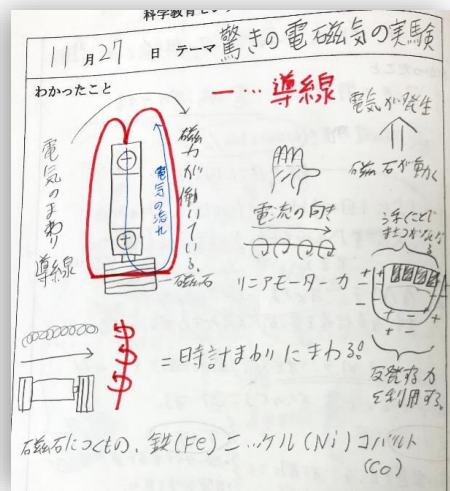 科学教育セン
11月27日 テーマ 驚きの電磁気の実験
わかったこと
ー… 導線
電気が発生
磁石が動く
電気のまわり
導線
磁力が働いている。
電気の流れ
磁石
電流の向き
リニアモーターカ
浮くことで
反発する力
を利用する。
=時計まわりにまわる。
磁石につくもの、鉄(Fe)ニッケル(Ni)コバルト
(Co)